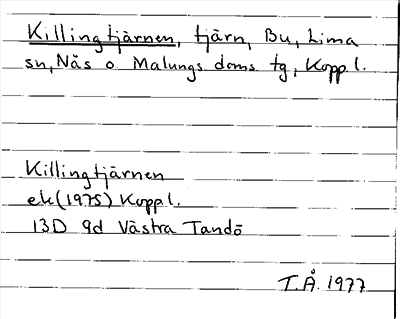 Killingtjärnen, tjärn, Bu, Lima
sn, Nås o Malungs doms tg, Kopp l.
Killingtjärnen
ek (1975) Kopp l.
13D 9d Västra Tandö
T.Å. 1977